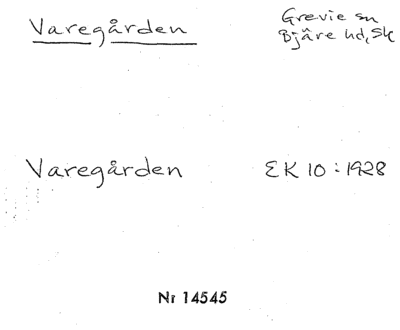 Varegården Grevie sn
Bjäre hd, Sk
Varegården EK 10:1928
Nr 14545